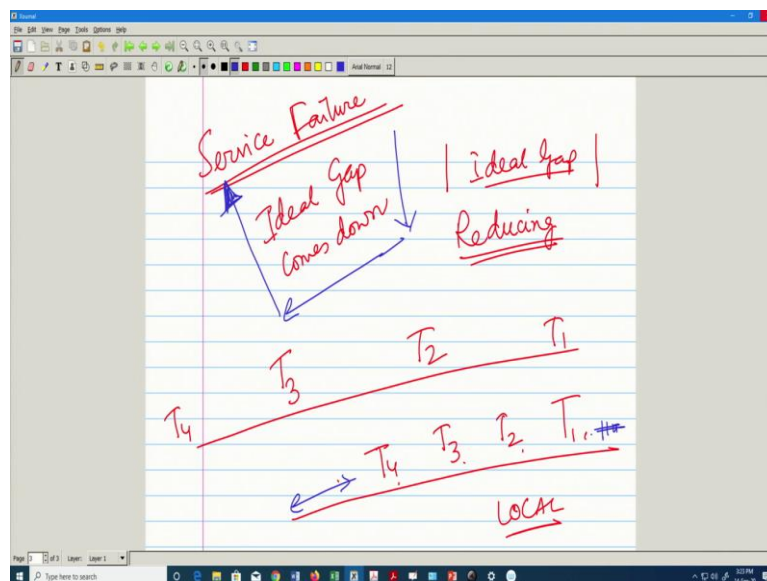 Xournal
File Edit View Page Tools Options Help
Arial Normal 12
Service Failure
Ideal Gap
comes down
| Ideal Gap |
Reducing
T4 T3 T2 T1
T4 T3 T2 T1
LOCAL
Page 3 of 3 Layer: Layer 1
Type here to search
3:03 PM